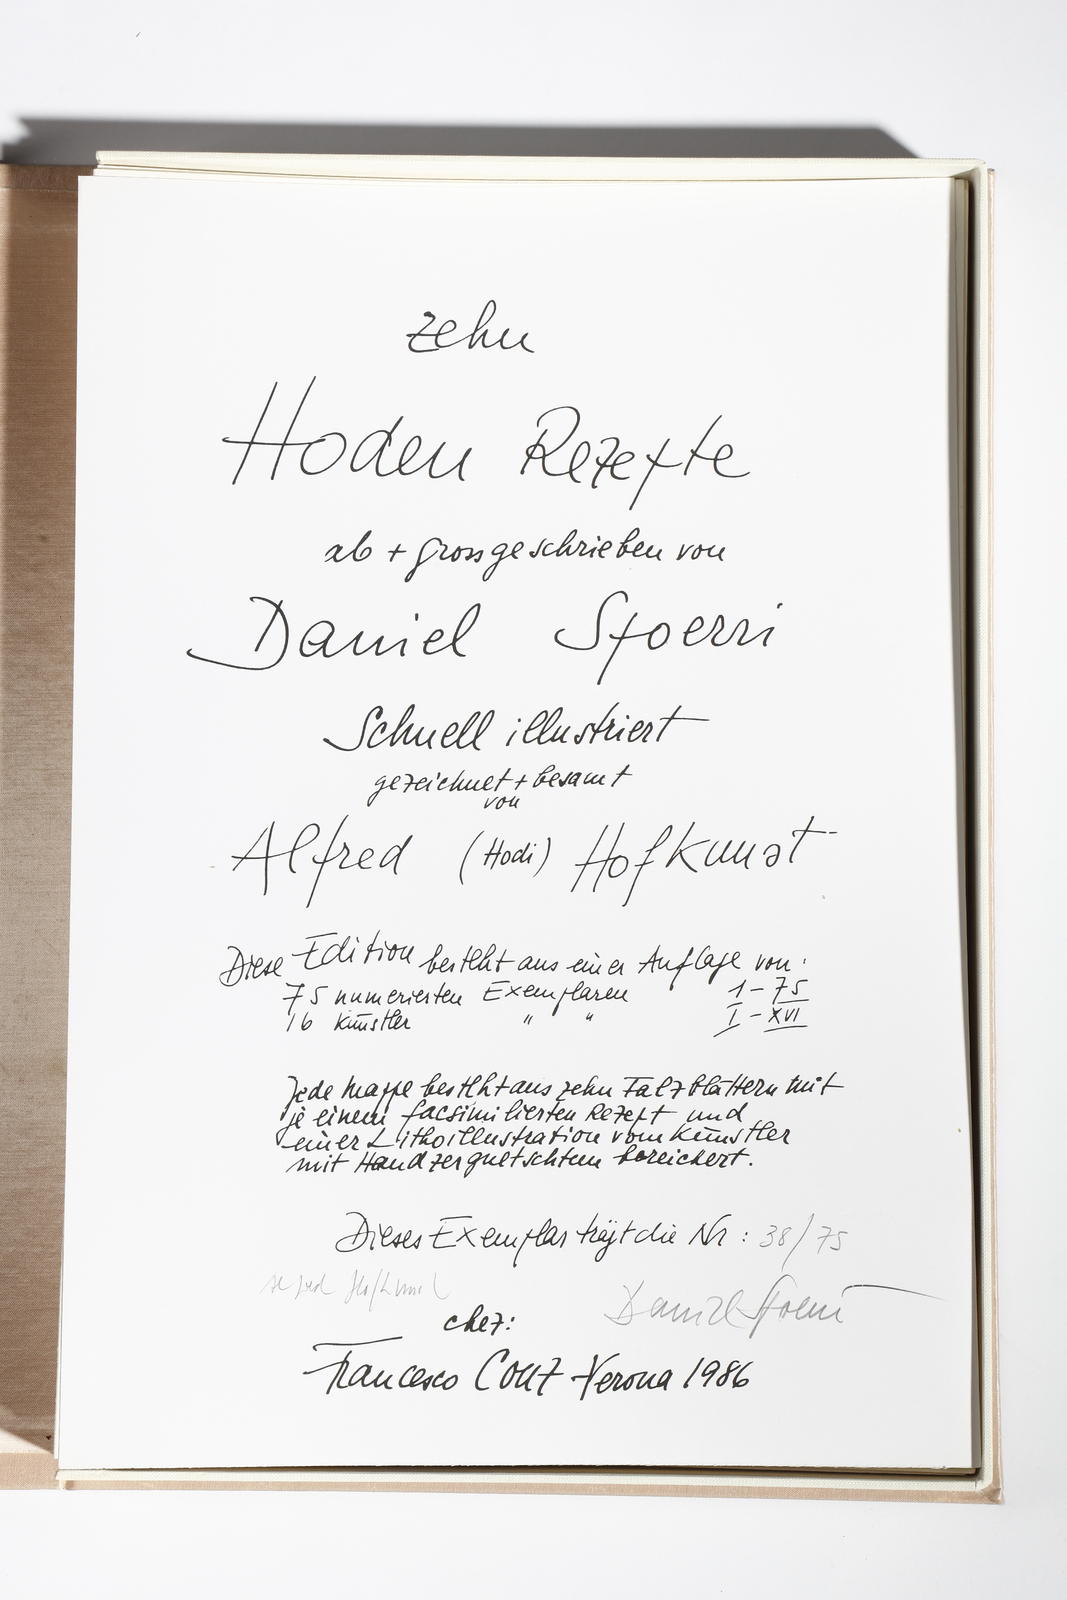 zehn
Hoden Rezepte
ab + grossgeschrieben von
Daniel Spoerri
Schnell illustriert
gezeichnet + besamt
von
Alfred (Hodi) Hofkunst
Diese Edition besteht aus einer Auflage von:
75 numerierten Exemplaren 1-75
16 Künstler " " I-XVI
Jede Mappe besteht aus zehn Falzblättern mit
je einem facsimilierten Rezept und
einer Lithoillustration vom Künstler
mit Handzerquetschtem bereichert.
Dieses Exemplar trägt die Nr: 38/75
Alfred Hofkunst
Daniel Spoerri
chez:
Francesco Conz Verona 1986